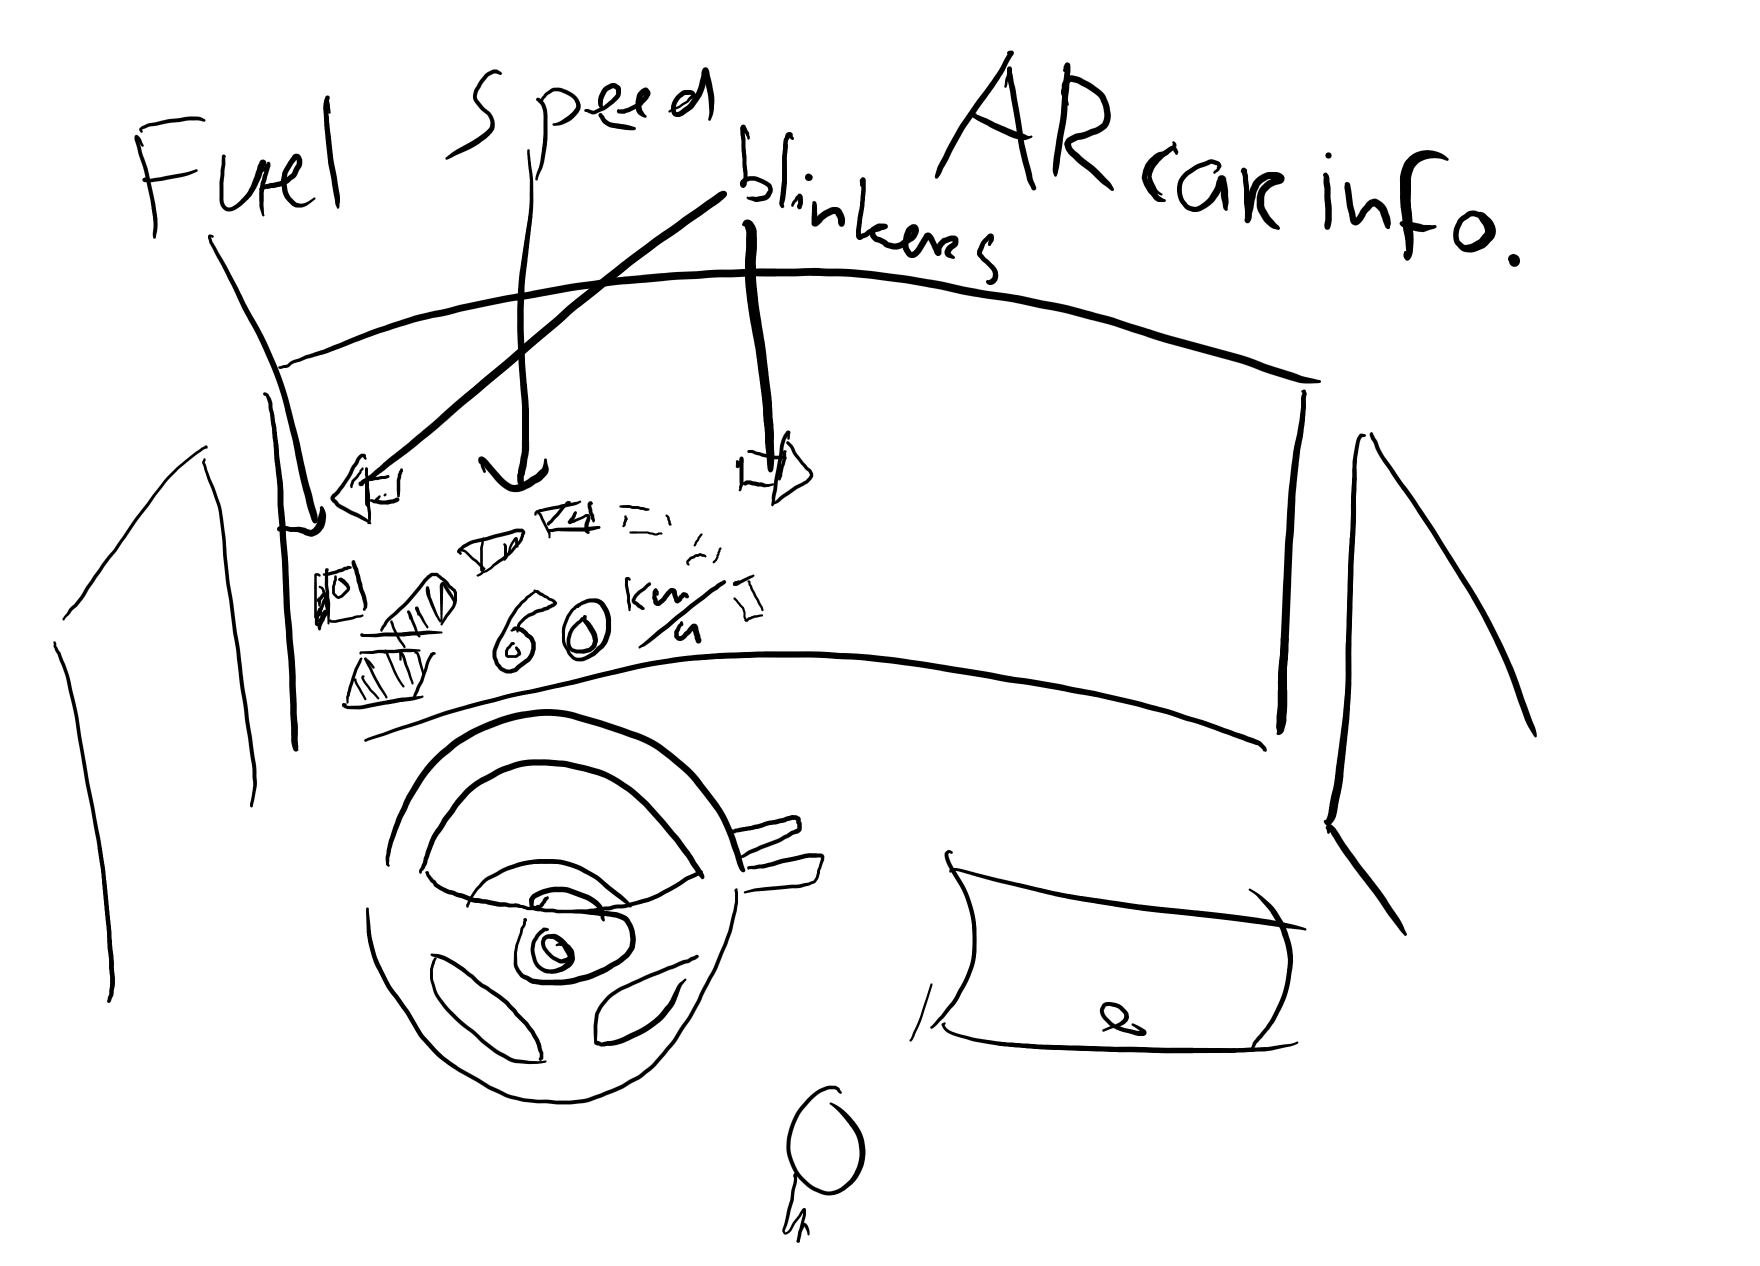 Fuel
speed
blinkers
AR car info.
60 km/h